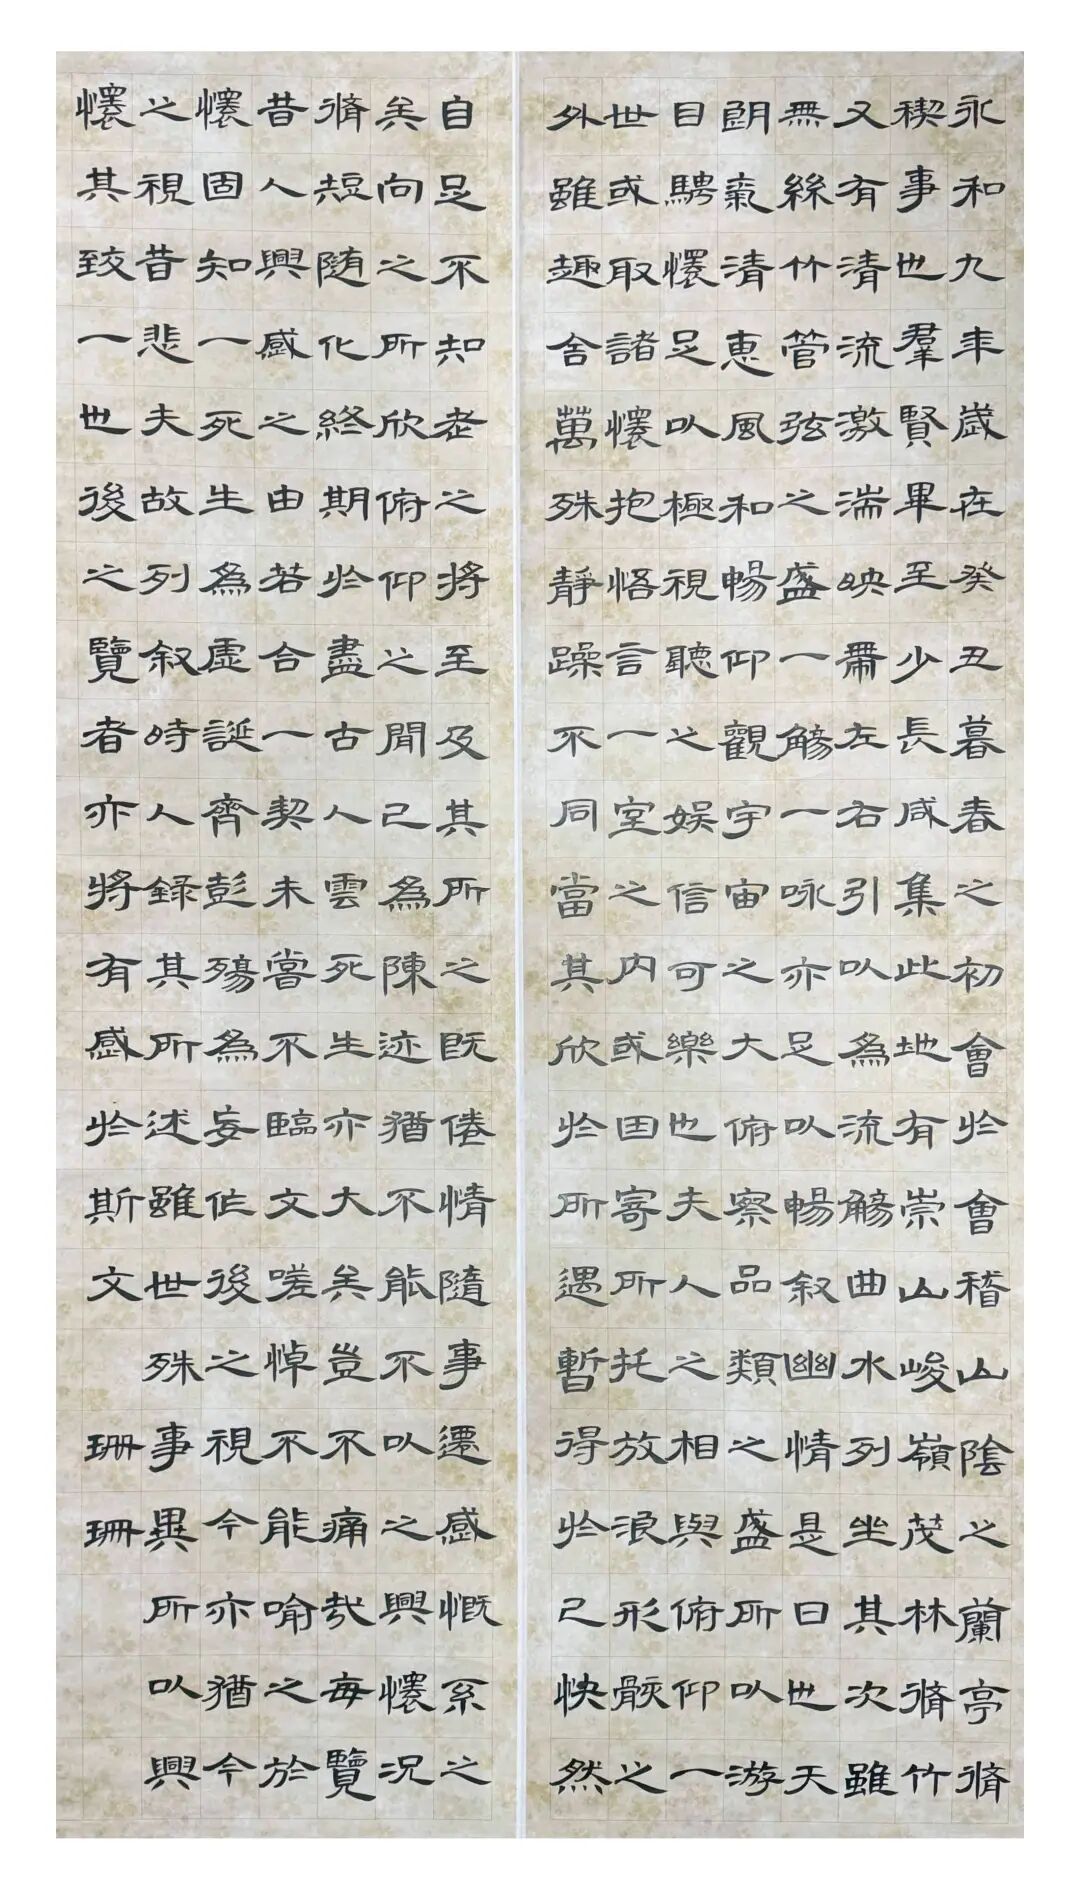 永和九年歲在癸丑暮春之初會於會稽山陰之蘭亭脩
禊事也羣賢畢至少長咸集此地有崇山峻嶺茂林脩竹
又有清流激湍映帶左右引以為流觴曲水列坐其次雖
無絲竹管弦之盛一觴一咏亦足以暢叙幽情是日也天
朗氣清惠風和暢仰觀宇宙之大俯察品類之盛所以游
目騁懷足以極視聽之娛信可樂也夫人之相與俯仰一
世或取諸懷抱悟言一室之內或因寄所托放浪形骸之
外雖趣舍萬殊靜躁不同當其欣於所遇暫得於己快然
自足不知老之將至及其所之既倦情隨事遷感慨系之
矣向之所欣俯仰之間已為陳迹猶不能不以之興懷況
脩短随化終期於盡古人雲死生亦大矣豈不痛哉每覽
昔人興感之由若合一契未嘗不臨文嗟悼不能喻之於
懷固知一死生為虛誕齊彭殤為妄作後之視今亦猶今
之視昔悲夫故列叙時人錄其所述雖世殊事異所以興
懷其致一也後之覽者亦將有感於斯文
珊珊